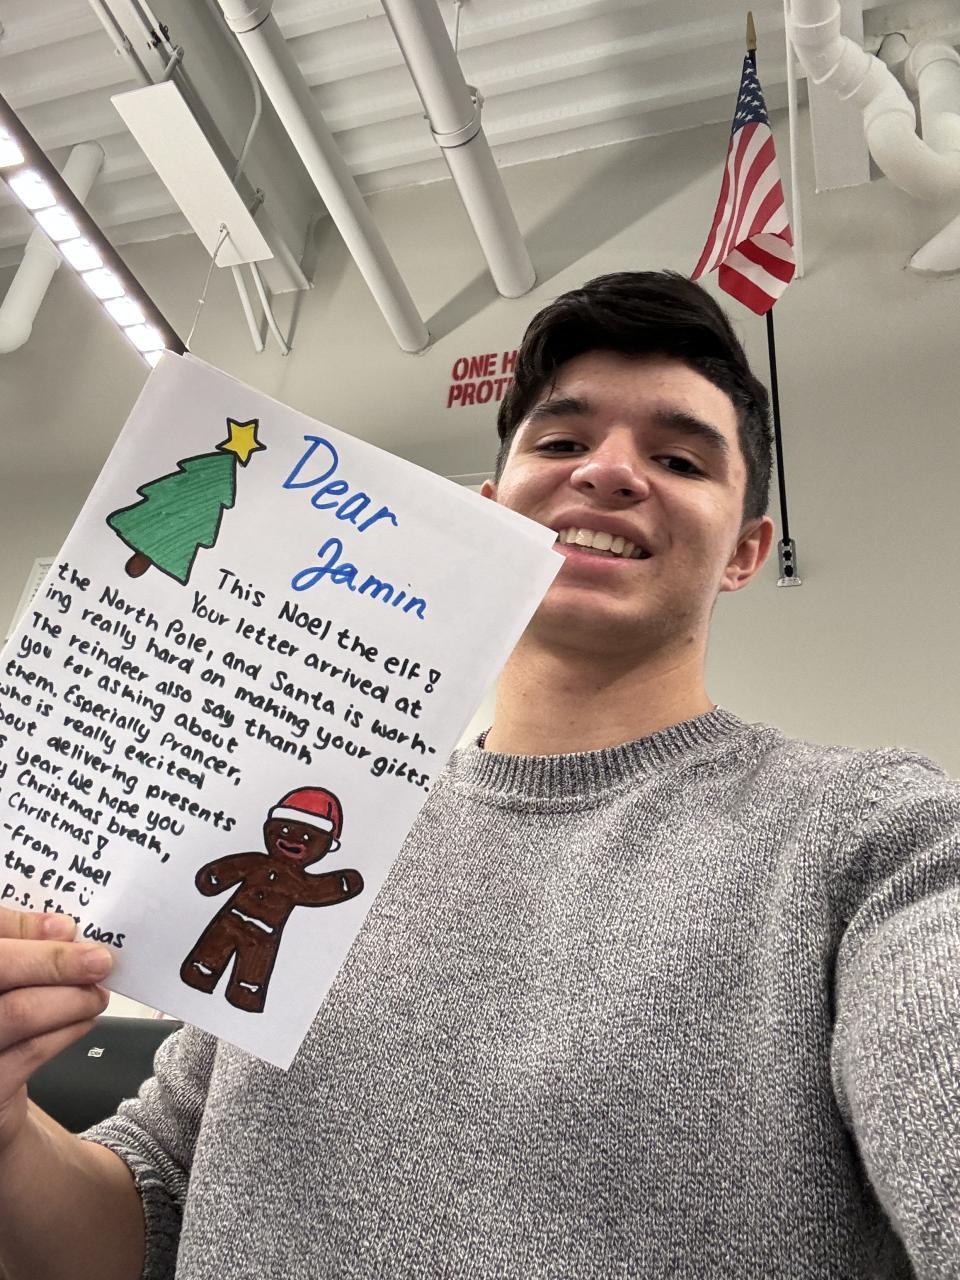 ONE H
PROT
Dear
Jamin
This Noel the elf!
Your letter arrived at
the North Pole, and Santa is work-
ing really hard on making your gifts.
The reindeer also say thank
you for asking about
them. Especially Prancer,
who is really excited
bout delivering presents
s year. We hope you
y Christmas break,
Christmas!
-from Noel
the Elf ü
p.s. that was